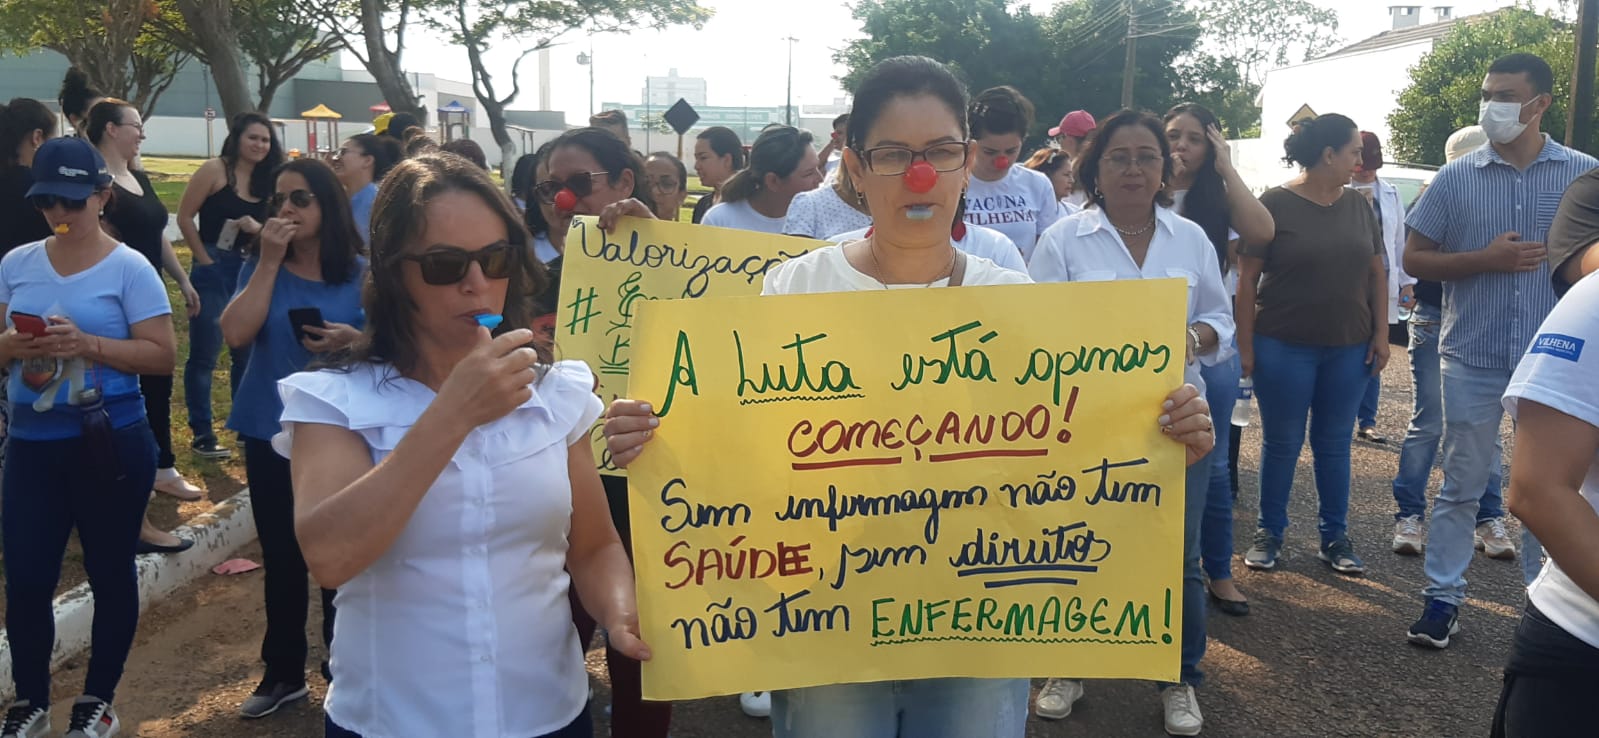 Valorização
#
A Luta está apenas
COMEÇANDO!
Sem enfermagem não tem
SAÚDE, sem direitos
não tem ENFERMAGEM!
VAC NA
VILHENA
VILHENA